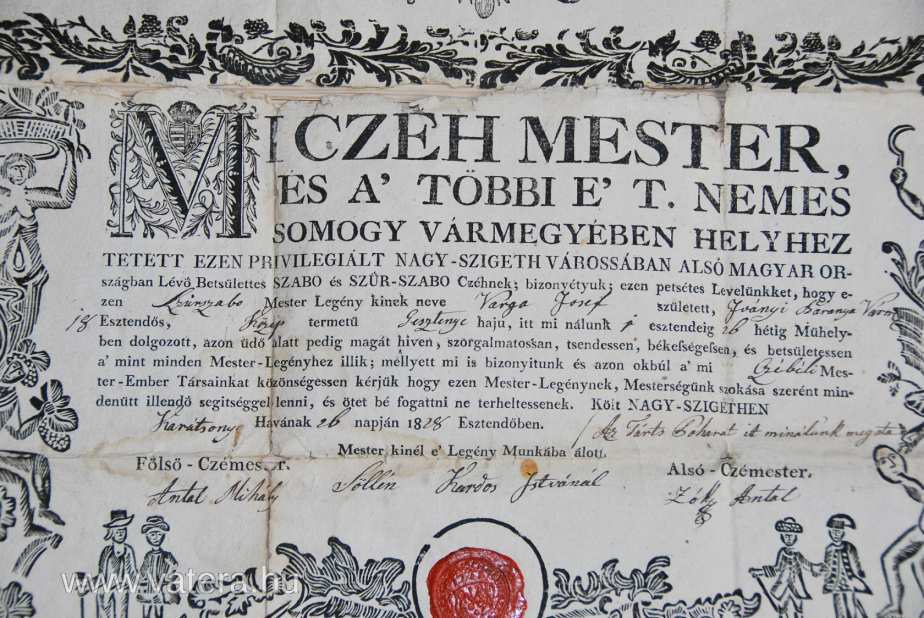 MI CZÉH MESTER,
ÉS A' TÖBBI E' T. NEMES
SOMOGY VÁRMEGYÉBEN HELYHEZ
TETETT EZEN PRIVILEGIÁLT NAGY-SZIGETH VÁROSSÁBAN ALSÓ MAGYAR OR-
szágban Lévő Betsülettes SZABO és SZŰR-SZABO Czéhnek; bizonyétyuk; ezen petsétes Levelünkket, hogy e-
zen Szürszabo Mester Legény kinek neve Varga Josef született, Iványi Baranya Várm
18 Esztendős, Közép termetű Gesztenye hajú, itt mi nálunk 1 esztendeig 26 hétig Mühely-
ben dolgozott, azon üdő alatt pedig magát hiven, szorgalmatossan, tsendessen, békeségessen, és betsületessen
a' mint minden Mester-Legényhez illik; méllyett mi is bizonyitunk és azon okbúl a' mi Czébéli Mes-
ter-Ember Társainkat közönségessen kérjük hogy ezen Mester-Legénynek, Mesterségünk szokása szerént min-
denütt illendő segitséggel lenni, és ötet bé fogattni ne terheltessenek. Költ NAGY-SZIGETHEN
Karátsony Havának 26 napján 1828 Esztendőben. Az Tarts Poharat it minálunk
Mester kinél e' Legény Munkába álott.
Főlső-Czémester. Alsó-Czémester.
Antal Mihály Söllén Kardos Istvánál Zóky Antal
www.vatera.hu